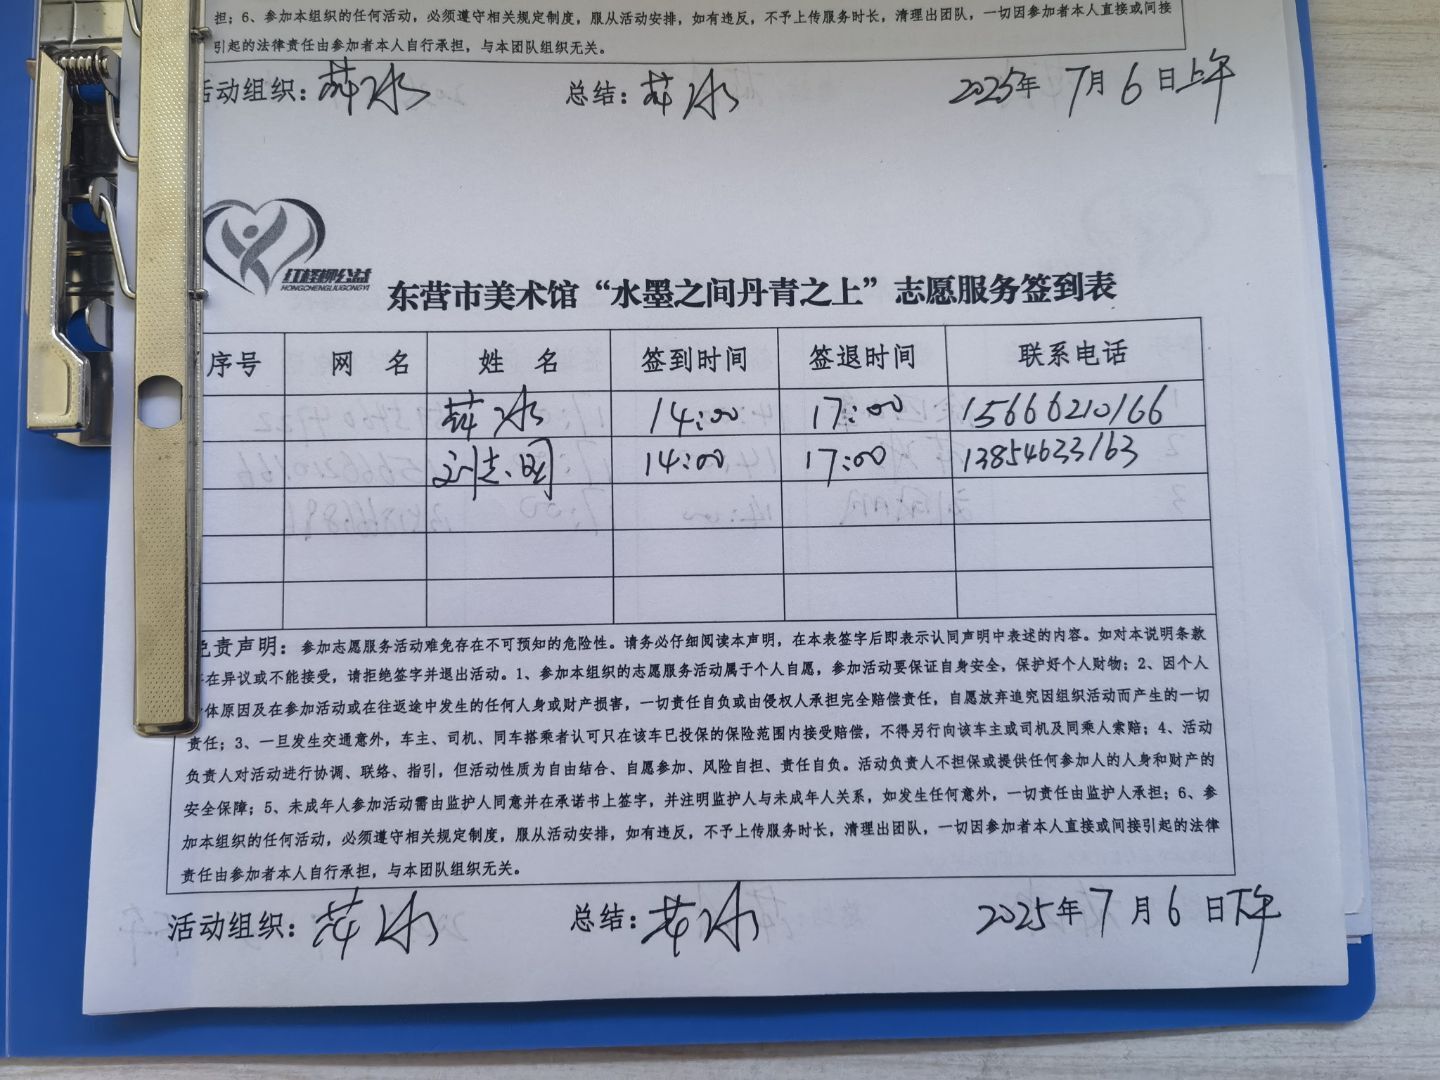 担；6、参加本组织的任何活动，必须遵守相关规定制度，服从活动安排，如有违反，不予上传服务时长，清理出团队，一切因参加者本人直接或间接
引起的法律责任由参加者本人自行承担，与本团队组织无关。
活动组织： 冰 总结： 冰 2025年 7月 6 日上午
红柽柳公益
HONGCHENGLIUGONGYI
东营市美术馆“水墨之间丹青之上”志愿服务签到表
序号 网 名 姓 名 签到时间 签退时间 联系电话
冰 14:00 17:00 15666210166
刘志明 14:00 17:00 13854633163
免责声明：参加志愿服务活动难免存在不可预知的危险性。请务必仔细阅读本声明，在本表签字后即表示认同声明中表述的内容。如对本说明条款
在异议或不能接受，请拒绝签字并退出活动。1、参加本组织的志愿服务活动属于个人自愿，参加活动要保证自身安全，保护好个人财物；2、因个人
体原因及在参加活动或在往返途中发生的任何人身或财产损害，一切责任自负或由侵权人承担完全赔偿责任，自愿放弃追究因组织活动而产生的一切
责任；3、一旦发生交通意外，车主、司机、同车搭乘者认可只在该车已投保的保险范围内接受赔偿，不得另行向该车主或司机及同乘人索赔；4、活动
负责人对活动进行协调、联络、指引，但活动性质为自由结合、自愿参加、风险自担、责任自负。活动负责人不担保或提供任何参加人的人身和财产的
安全保障；5、未成年人参加活动需由监护人同意并在承诺书上签字，并注明监护人与未成年人关系，如发生任何意外，一切责任由监护人承担；6、参
加本组织的任何活动，必须遵守相关规定制度，服从活动安排，如有违反，不予上传服务时长，清理出团队，一切因参加者本人直接或间接引起的法律
责任由参加者本人自行承担，与本团队组织无关。
活动组织： 冰 总结： 冰 2025年 7 月 6 日下午